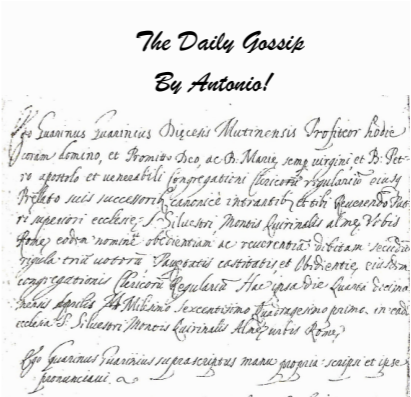 The Daily Gossip
By Antonio!
Ego Guarinus Guarinius Diocesis Mutinensis Profiteor hodie
coram domino, et Promitto Deo, ac B. Mariæ semp virgini et B. Pet-
ro apostolo et venerabili Congregationi Clericorũ regulariũ eiusq
Prelato suis successoribꝰ canonicè intrantibꝰ, et tibi Reverendo Pat
ri superiori ecclesiæ S. Silvestri Montis Quirinalis almæ Urbis
Romæ eodem nomine obedientiam ac reverentiã debitam secundũ
regulã triũ votorũ Paupertatis castitatis et Obedientiæ, eiusdem
congregationis Clericorũ Regulariũ Hac ipsa die Quarta decima
mensis Aprilis Millesimo sexcentissimo Quadragesimo primo. in eadẽ
ecclesia S. Silvestri Montis Quirinalis Almæ urbis Romæ
Ego Guarinus Guarinius suprascriptus manu propria scripsi et ipse
pronunciavi.